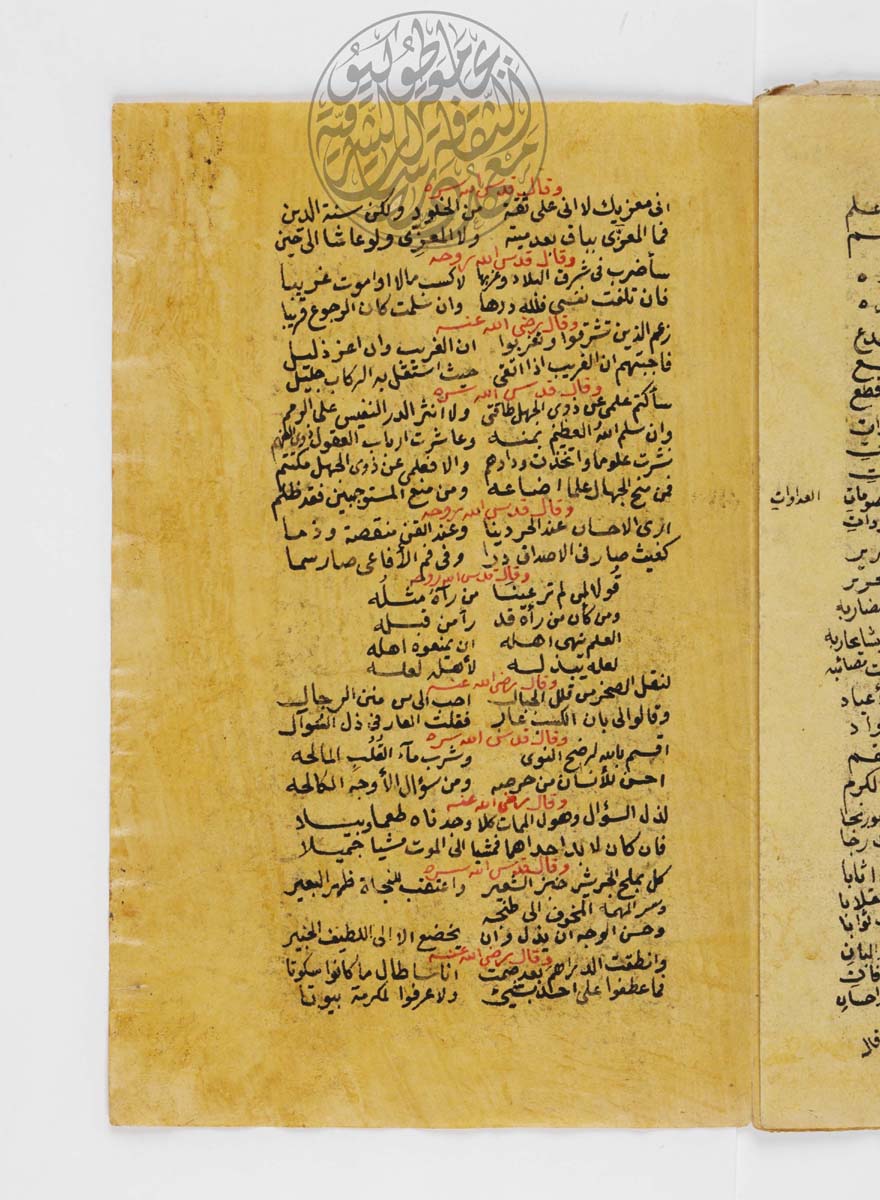 وقال قدس الله سره
انى معزيك لا انى على ثقة من الخلود ولكن سنة الدين
فما المعزى بباق بعد ميته ولا المعزى ولو عاشا الى حين
وقال قدس الله روحه
سأضرب فى شرق البلاد وغربها لاكسب مالا او اموت غريبا
فان تلفت نفسى فلله درها وان سلمت كان الرجوع قريبا
وقال رضى الله عنه
زعم الذين تشرقوا وتغربوا ان الغريب وان اعز ذليل
فاجبتهم ان الغريب اذا اتقى حيث استقل به الركاب جليل
وقال قدس الله سره
سأكتم علمى عن ذوى الجهل طاقتى ولا انثر الدر النفيس على
وان سلم الله العظيم بمنه وعاشرت ارباب العقول
نشرت علوما واتخذت ودادهم والا فعلمى عن ذوى الجهل مكتتم
فمن منح الجهال علما اضاعه ومن منع المستوجبين فقد ظلم
وقال قدس الله روحه
ارى الاحسان عند الحر دينا وعند القن منقصة وذما
كغيث صار فى الاصداف درا وفى فم الأفاعى صار سما
وقال قدس الله روحه
قولا لمن لم تر عينا من رآه مثله
ومن كان من رآه قد رآ من قبله
العلم ينهى اهله ان يمنعوه اهله
لعله يبذله لأهله لعله
وقال رضى الله عنه
لنقل الصخر من قلل الجبال احب الى من منن الرجال
وقالوا لى بان الكسب عار فقلت العار فى ذل السوآل
وقال قدس الله سره
اقسم بالله لرضخ النوى وشرب مآء القُلُب المالحه
احسن للأنسان من حرصه ومن سؤال الأوجه الكالحه
وقال رضى الله عنه
لذل السؤال وهول الممات كلا وجدناه طعما وبيلا
فان كان لا بد احداهما فمشيا الى الموت مشيا جميلا
وقال قدس الله سره
كل بملح الجرش خبز الشعير واعتقب للنجاة ظهر البعير
وسر المهمه المخوف الى طنجه
وحسن الوجه ان يذل وان يخضع الا الى اللطيف الخبير
وقال رضى الله عنه
وانطقت الدراهم بعد صمت اناسا طال ما كانوا سكوتا
فما عطفوا على احد بشئ ولا عرفوا لمكرمة بيوتا
العداوات